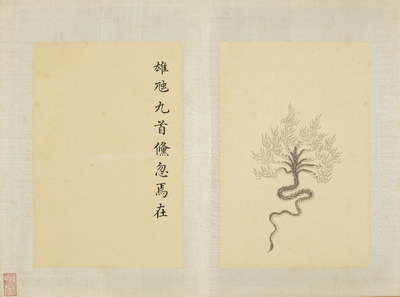 雄虺九首儵忽焉在